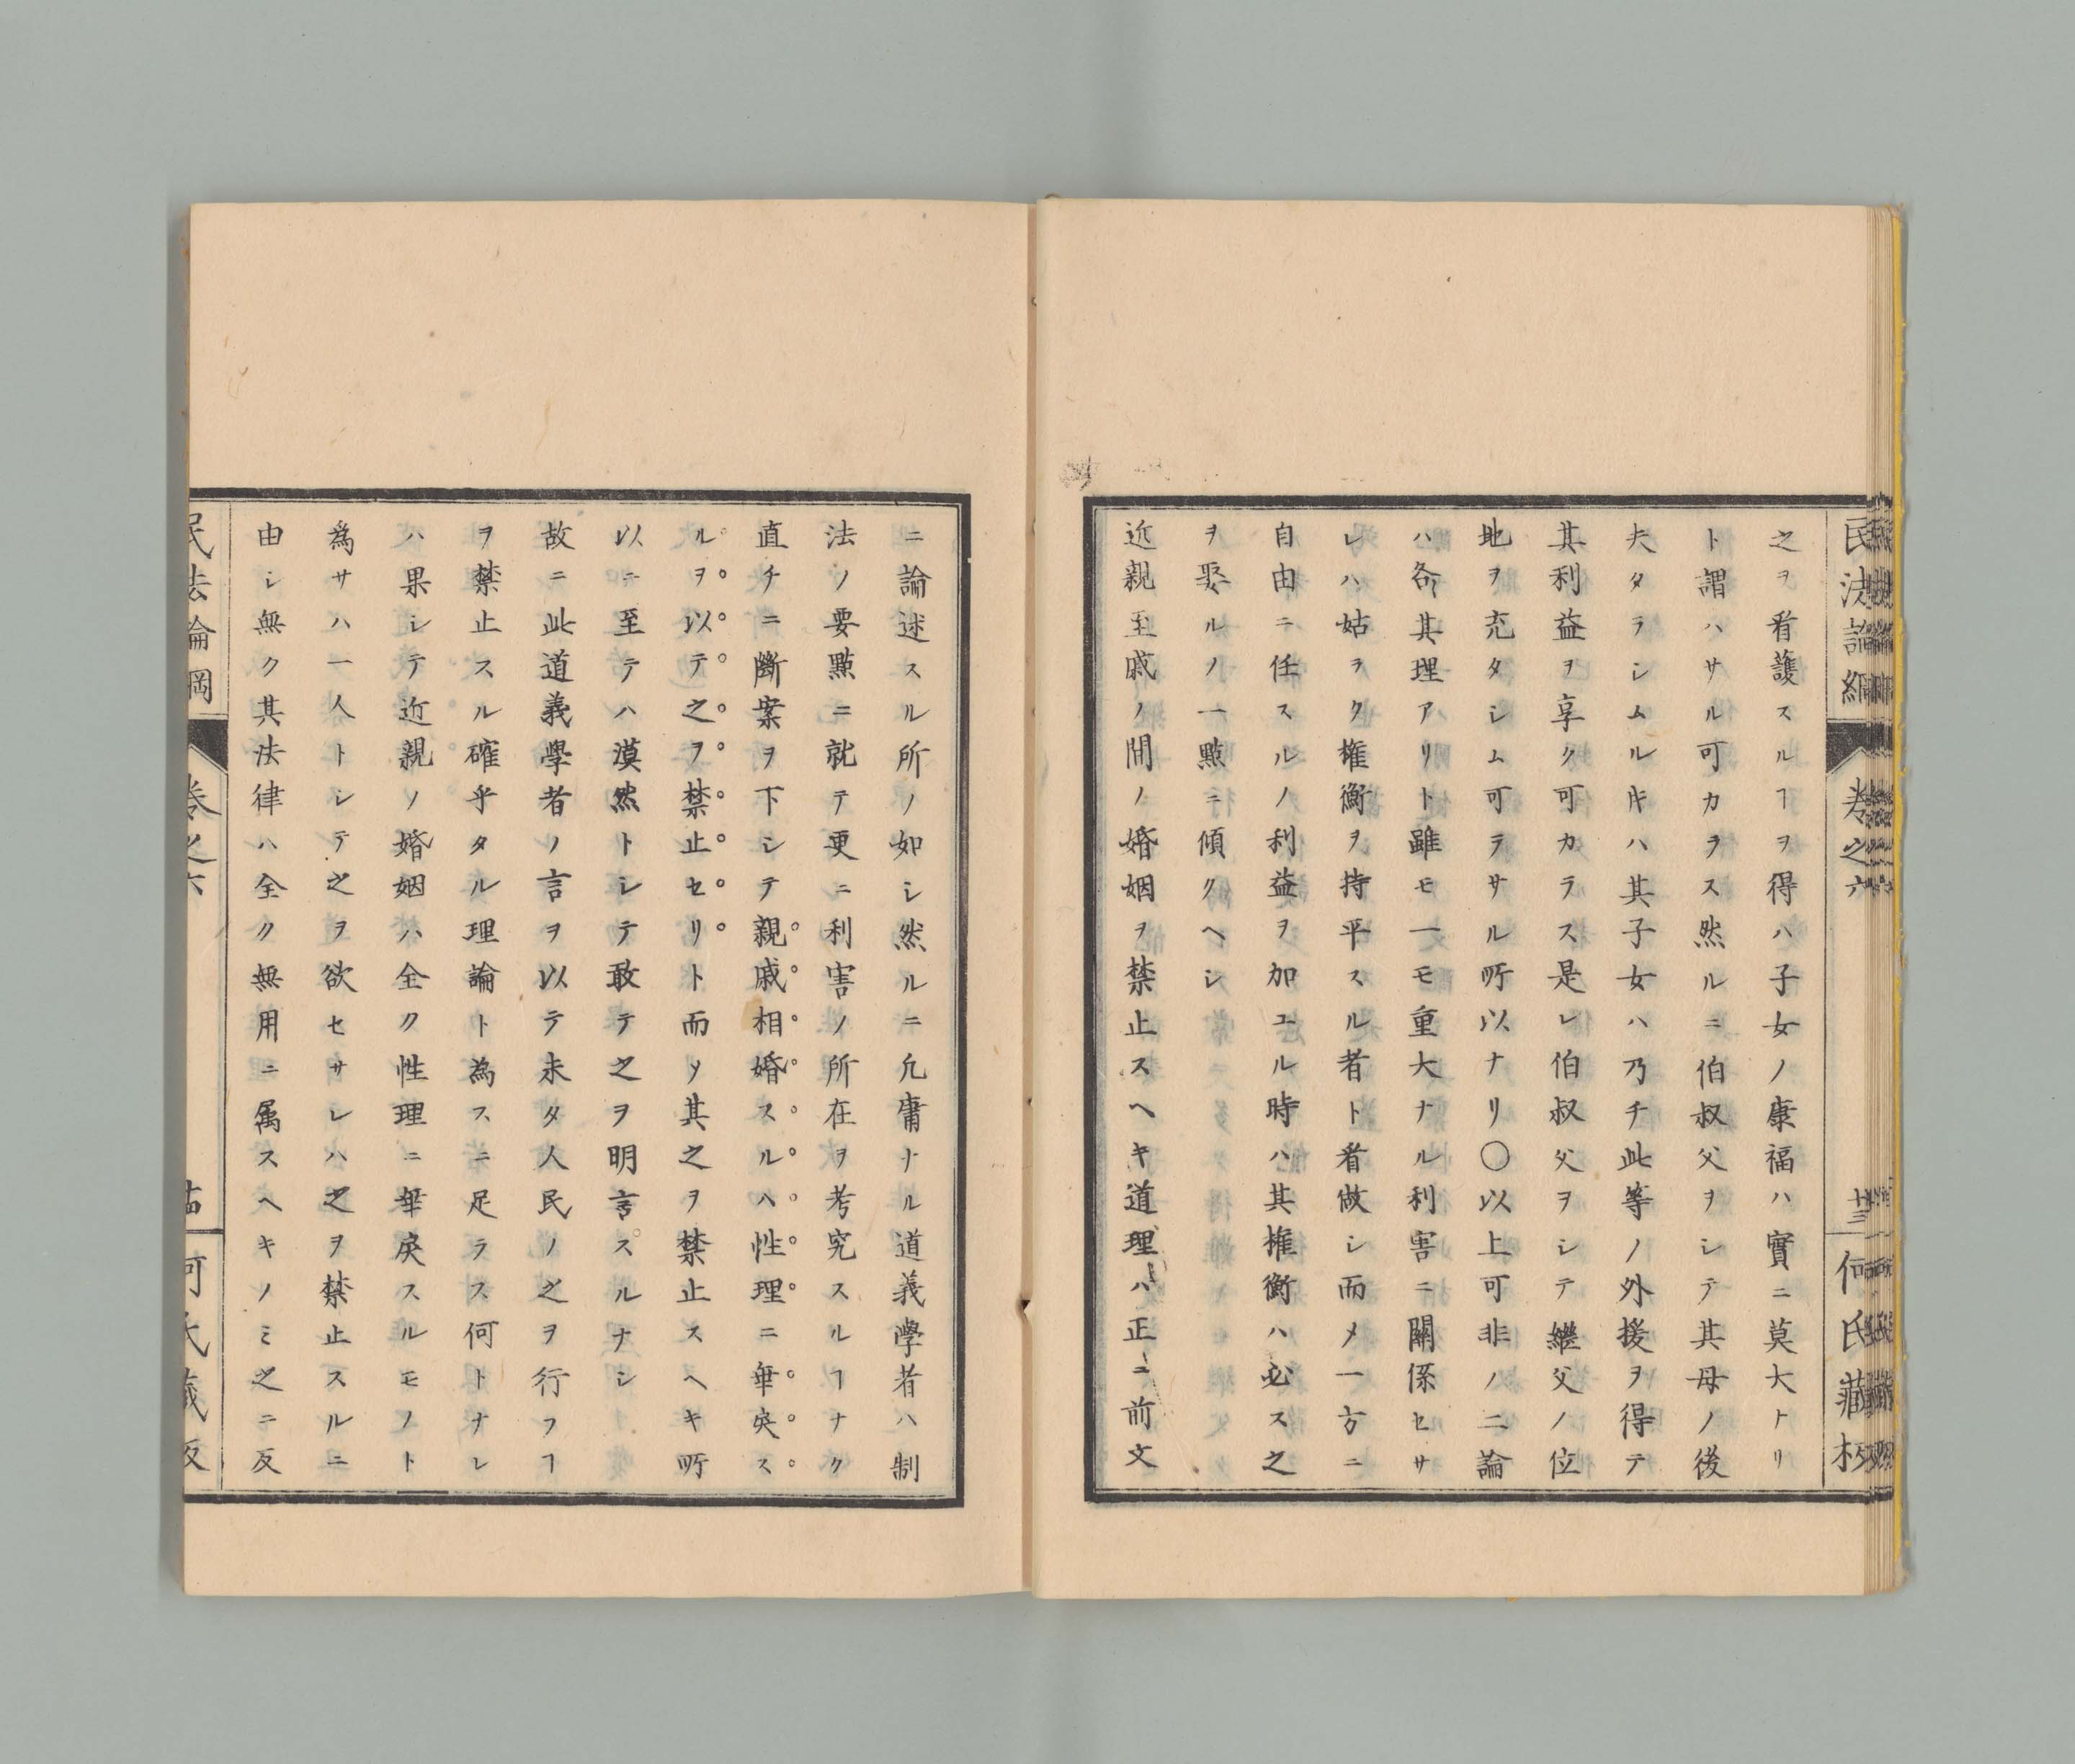 民法論綱 卷之六 十三 何氏藏板
之ヲ看護スルヿヲ得ハ子女ノ康福ハ實ニ莫大トリ
ト謂ハサル可カラス然ルニ伯叔父ヲシテ其母ノ後
夫タラシムルキハ其子女ハ乃チ此等ノ外援ヲ得テ
其利益ヲ享ク可カラス是レ伯叔父ヲシテ繼父ノ位
地ヲ充タシム可ラサル所以ナリ〇以上可非ノ二論
ハ各其理アリト雖モ一モ重大ナル利害ニ關係セサ
レハ姑ヲク権衡ヲ持平スル者ト看做シ而メ一方ニ
自由ニ任スルノ利益ヲ加エル時ハ其権衡ハ必ス之
ヲ娶ルノ一點ニ傾クヘシ
近親至戚ノ間ノ婚姻ヲ禁止スヘキ道理ハ正ニ前文
ニ論述スル所ノ如シ然ルニ凢庸ナル道義學者ハ制
法ノ要點ニ就テ更ニ利害ノ所在ヲ考究スルヿナク
直チニ斷案ヲ下シテ親戚相婚スルハ性理ニ乖戾ス
ルヲ以テ之ヲ禁止セリト而メ其之ヲ禁止スヘキ所
以ニ至テハ漠然トシテ敢テ之ヲ明言スルナシ
故ニ此道義學者ノ言ヲ以テ未タ人民ノ之ヲ行フヿ
ヲ禁止スル確乎タル理論ト為スニ足ラス何トナレ
ハ果シテ近親ノ婚姻ハ全ク性理ニ乖戾スルモノト
為サハ一人トシテ之ヲ欲セサレハ之ヲ禁止スルニ
由シ無ク其法律ハ全ク無用ニ属スヘキノミ之ニ反
民法論綱 卷之六 何氏藏板